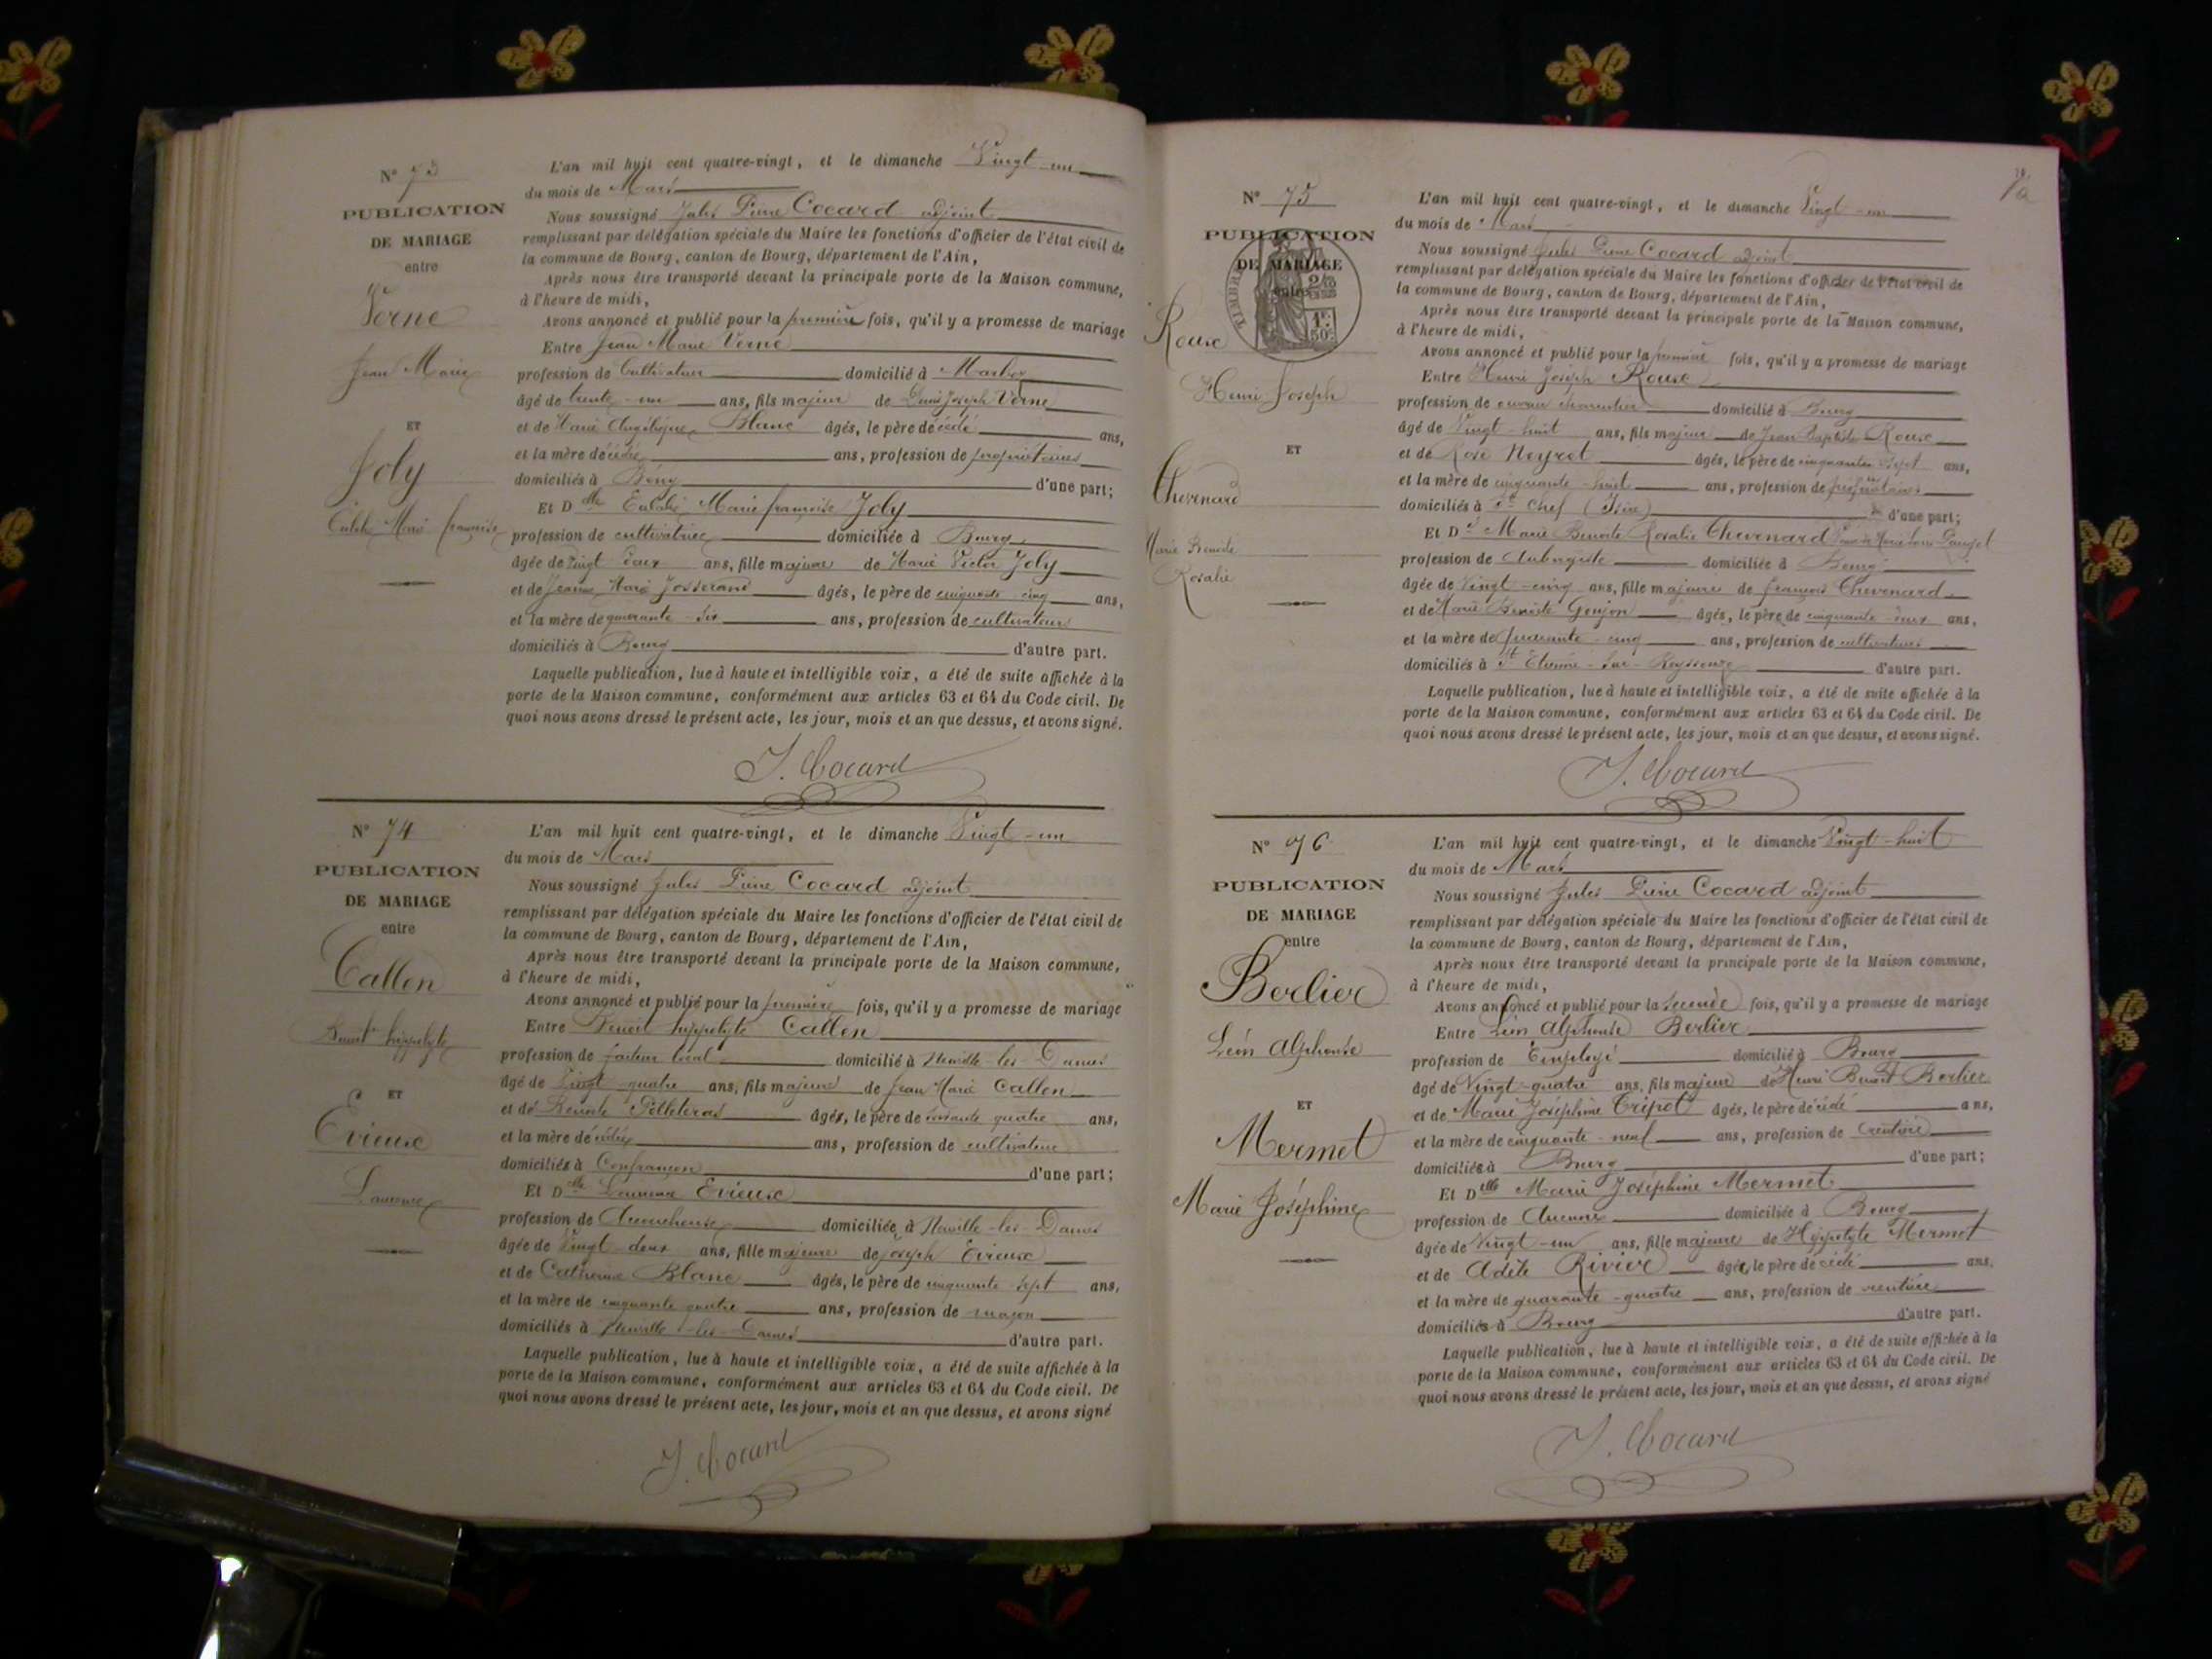 N° 73
PUBLICATION
DE MARIAGE
entre
Verne
Jean Marie
ET
Joly
Eulalie Marie françoise
L'an mil huit cent quatre-vingt, et le dimanche Vingt-un
du mois de Mars
Nous soussigné Jules Pierre Cocard adjoint
remplissant par délégation spéciale du Maire les fonctions d'officier de l'état civil de
la commune de Bourg, canton de Bourg, département de l'Ain,
Après nous être transporté devant la principale porte de la Maison commune,
à l'heure de midi,
Avons annoncé et publié pour la première fois, qu'il y a promesse de mariage
Entre Jean Marie Verne
profession de Cultivateur domicilié à Marboz
âgé de trente-un ans, fils majeur de Denis Joseph Verne
et de Marie Angélique Blanc âgés, le père décédé ans,
et la mère décédée ans, profession de propriétaires
domiciliés à Bény d'une part;
Et D lle Eulalie Marie françoise Joly
profession de cultivatrice domiciliée à Bourg
âgée de Vingt deux ans, fille majeure de Marie Victor Joly
et de Jeanne Marie Josserand âgés, le père de cinquante-cinq ans,
et la mère de quarante-six ans, profession de cultivateurs
domiciliés à Bourg d'autre part.
Laquelle publication, lue à haute et intelligible voix, a été de suite affichée à la
porte de la Maison commune, conformément aux articles 63 et 64 du Code civil. De
quoi nous avons dressé le présent acte, les jour, mois et an que dessus, et avons signé.
J. Cocard
N° 74
PUBLICATION
DE MARIAGE
entre
Callen
Benoit hippolyte
ET
Evieux
Laurence
L'an mil huit cent quatre-vingt, et le dimanche Vingt-un
du mois de Mars
Nous soussigné Jules Pierre Cocard adjoint
remplissant par délégation spéciale du Maire les fonctions d'officier de l'état civil de
la commune de Bourg, canton de Bourg, département de l'Ain,
Après nous être transporté devant la principale porte de la Maison commune,
à l'heure de midi,
Avons annoncé et publié pour la première fois, qu'il y a promesse de mariage
Entre Benoit hippolyte Callen
profession de facteur local domicilié à Neuville-les-Dames
âgé de Vingt-quatre ans, fils majeur de Jean Marie Callen
et de Benoite Pelleteras âgés, le père de soixante quatre ans,
et la mère décédée ans, profession de cultivateur
domiciliés à Confrançon d'une part;
Et D lle Laurence Evieux
profession de domiciliée à Neuville-les-Dames
âgée de Vingt-deux ans, fille majeure de joseph Evieux
et de Catherine Blanc âgés, le père de cinquante sept ans,
et la mère de cinquante quatre ans, profession de maçon
domiciliés à Neuville-les-Dames d'autre part.
Laquelle publication, lue à haute et intelligible voix, a été de suite affichée à la
porte de la Maison commune, conformément aux articles 63 et 64 du Code civil. De
quoi nous avons dressé le présent acte, les jour, mois et an que dessus, et avons signé
J. Cocard
N° 75
PUBLICATION
DE MARIAGE
entre
TIMBRE
Roux
Henri Joseph
ET
Chevenard
Marie Benoite
Rosalie
L'an mil huit cent quatre-vingt, et le dimanche Vingt-un
du mois de Mars
Nous soussigné Jules Pierre Cocard adjoint
remplissant par délégation spéciale du Maire les fonctions d'officier de l'état civil de
la commune de Bourg, canton de Bourg, département de l'Ain,
Après nous être transporté devant la principale porte de la Maison commune,
à l'heure de midi,
Avons annoncé et publié pour la première fois, qu'il y a promesse de mariage
Entre Henri Joseph Roux
profession de ouvrier charpentier domicilié à Bourg
âgé de Vingt-huit ans, fils majeur de Jean-Baptiste Roux
et de Rose Neyret âgés, le père de cinquante sept ans,
et la mère de cinquante-huit ans, profession de propriétaires
domiciliés à St Chef (Isère) d'une part;
Et D Marie Benoite Rosalie Chevenard
profession de Aubergiste domiciliée à Bourg
âgée de Vingt-cinq ans, fille majeure de françois Chevenard
et de Marie Benoite Goujon âgés, le père de cinquante-deux ans,
et la mère de quarante-cinq ans, profession de cultivateurs
domiciliés à St Etienne-sur-Reyssouze d'autre part.
Laquelle publication, lue à haute et intelligible voix, a été de suite affichée à la
porte de la Maison commune, conformément aux articles 63 et 64 du Code civil. De
quoi nous avons dressé le présent acte, les jour, mois et an que dessus, et avons signé.
J. Cocard
N° 76
PUBLICATION
DE MARIAGE
entre
Berlier
Léon Alphonse
ET
Mermet
Marie Joséphine
L'an mil huit cent quatre-vingt, et le dimanche Vingt-huit
du mois de Mars
Nous soussigné Jules Pierre Cocard adjoint
remplissant par délégation spéciale du Maire les fonctions d'officier de l'état civil de
la commune de Bourg, canton de Bourg, département de l'Ain,
Après nous être transporté devant la principale porte de la Maison commune,
à l'heure de midi,
Avons annoncé et publié pour la seconde fois, qu'il y a promesse de mariage
Entre Léon Alphonse Berlier
profession de Employé domicilié à Bourg
âgé de Vingt-quatre ans, fils majeur de Henri Benoit Berlier
et de Marie Joséphine Tripot âgés, le père décédé ans,
et la mère de cinquante-neuf ans, profession de rentière
domiciliés à Bourg d'une part;
Et D elle Marie Joséphine Mermet
profession de Aucune domiciliée à Bourg
âgée de Vingt-un ans, fille majeure de Hippolyte Mermet
et de Adèle Rivier âgés, le père décédé ans,
et la mère de quarante-quatre ans, profession de rentière
domiciliés à Bourg d'autre part.
Laquelle publication, lue à haute et intelligible voix, a été de suite affichée à la
porte de la Maison commune, conformément aux articles 63 et 64 du Code civil. De
quoi nous avons dressé le présent acte, les jour, mois et an que dessus, et avons signé
J. Cocard